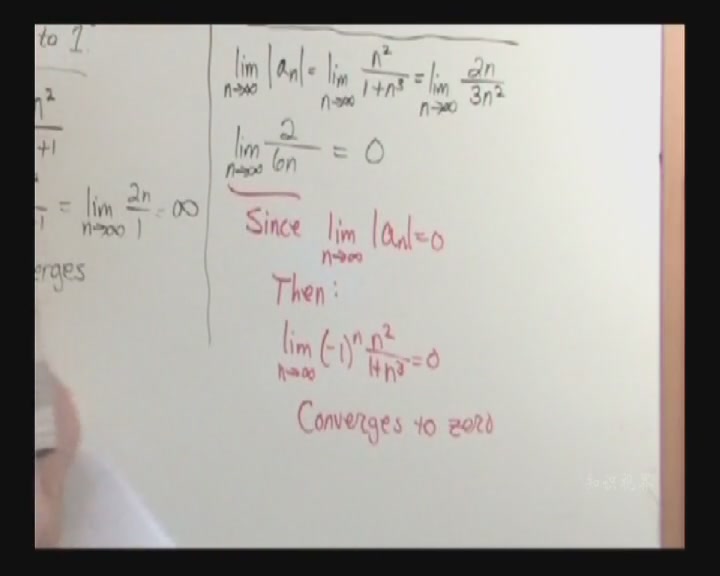 to 1.
n²
+1
= lim n→∞ 2n/1 = ∞
erges
lim n→∞ |an| = lim n→∞ n²/1+n³ = lim n→∞ 2n/3n²
lim n→∞ 2/6n = 0
Since lim n→∞ |an| = 0
Then:
lim n→∞ (-1)ⁿ n²/1+n³ = 0
Converges to zero